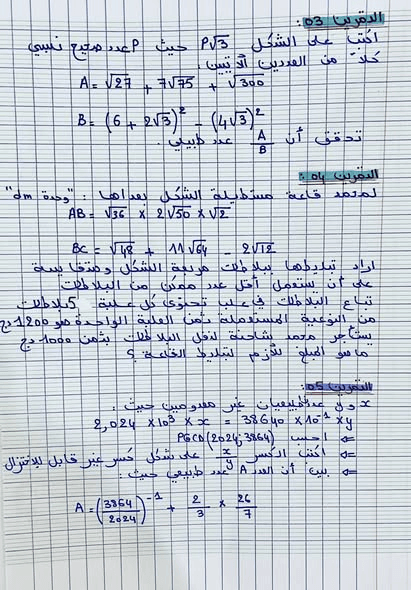 التمرين 03 :
اكتب على الشكل P√3 حيث P عدد صحيح نسبي
كلاً من العددين الآتيين :
A = √27 + 7√75 + √300
B = (6 + 2√3)² - (4√3)²
تحقق أن A/B عدد طبيعي .
التمرين 04 :
لمحمد قاعة مستطيلة الشكل بعداها "وحدة dm"
AB = √36 × 2√50 × √2
BC = √48 + 11√64 - 2√12
اراد تبليطها ببلاطات مربعة الشكل ومتقايسة
على أن يستعمل أقل عدد ممكن من البلاطات
تباع البلاطات في علب تحتوي كل علبة 5 بلاطات
من النوعية المستعملة وثمن العلبة الواحدة هو 1200 دج
يستأجر محمد شاحنة لنقل البلاطات بثمن 1000 دج
ما هو المبلغ اللازم لتبليط القاعة ؟
التمرين 05 :
x و y عددان طبيعيان غير معدومين حيث :
2,024 × 10³ × x = 38640 × 10⁻¹ × y
⇐ احسب PGCD(2024; 3864)
⇐ اكتب الكسر x/y على شكل كسر غير قابل للاختزال
⇐ بين أن العدد A عدد طبيعي حيث :
A = (3864/2024)⁻¹ + 2/3 × 26/7